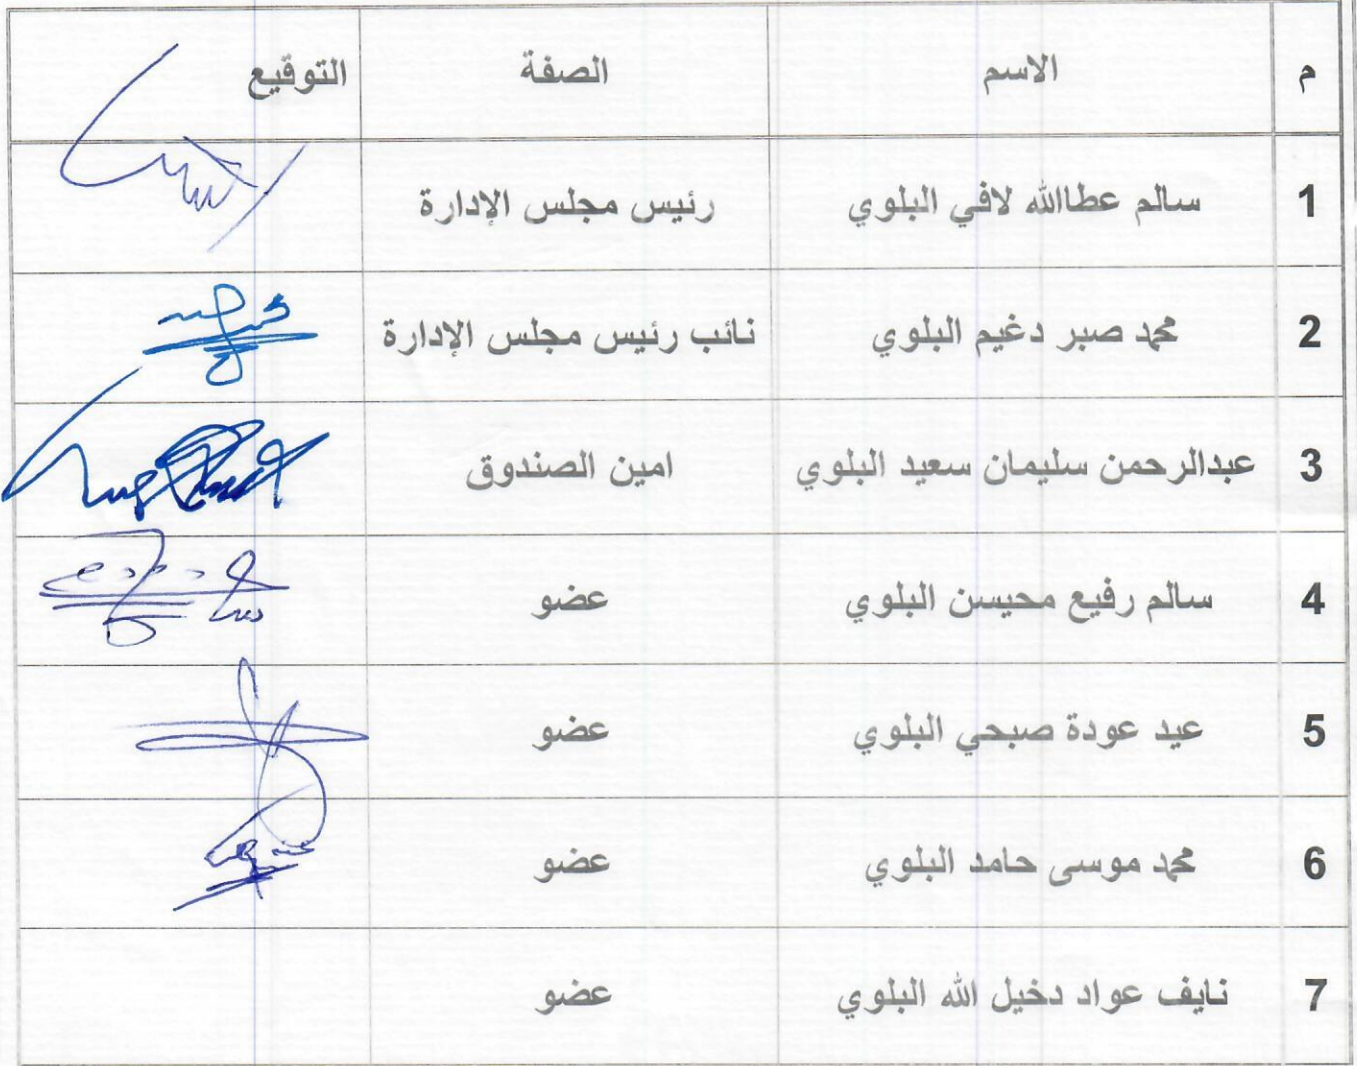 م الاسم الصفة التوقيع
1 سالم عطاالله لافي البلوي رئيس مجلس الإدارة
2 محمد صبر دغيم البلوي نائب رئيس مجلس الإدارة
3 عبدالرحمن سليمان سعيد البلوي امين الصندوق
4 سالم رفيع محيسن البلوي عضو
5 عيد عودة صبحي البلوي عضو
6 محمد موسى حامد البلوي عضو
7 نايف عواد دخيل الله البلوي عضو